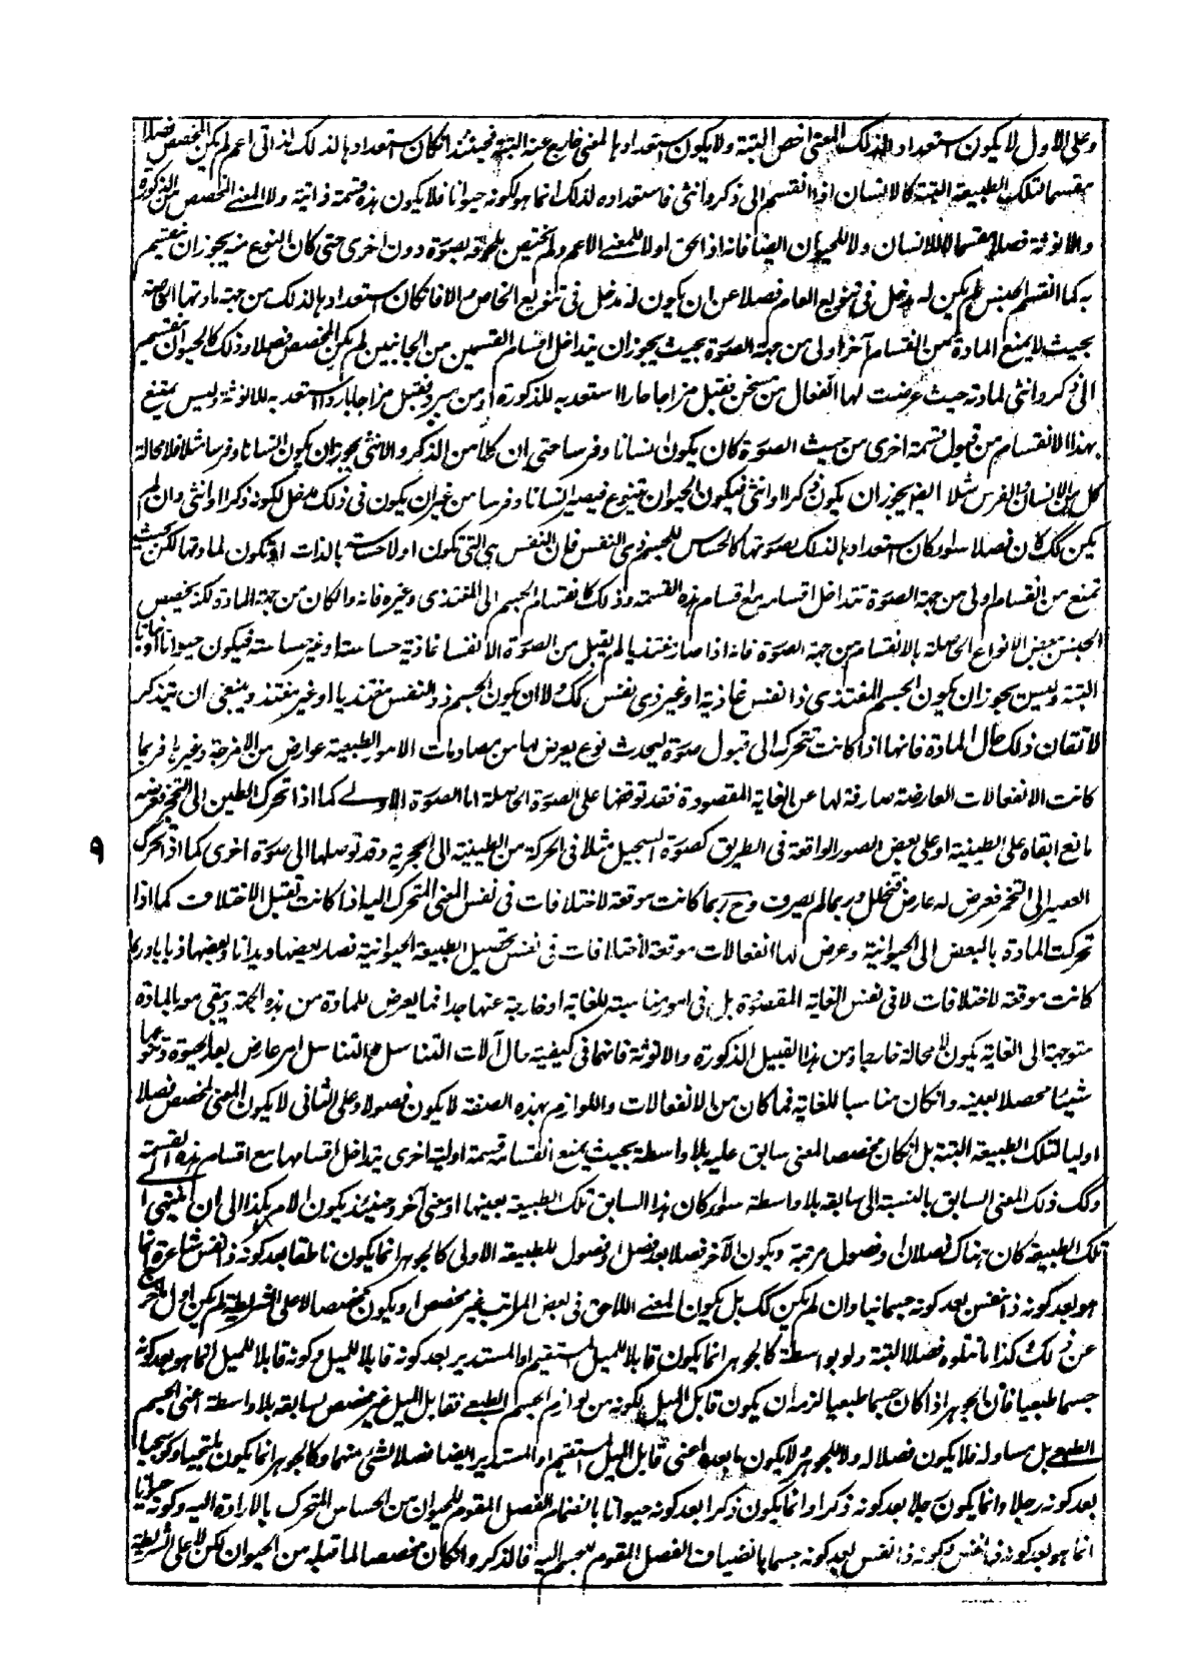 وعلى الاول لا يكون استعداده لذلك المعنى اخص البتة ولا يكون استعدادها لمعنى خارج عنه البتة فحينئذ ان كان استعدادها لذلك لذاتى اعم لم يكن المخصص فصلا
مقسما لتلك الطبيعة البتة كالانسان اذا انقسم الى ذكر وانثى فاستعداده لذلك انما هو لكونه حيوانا فلا يكون هذه قسمة ذاتية ولا المعنى المخصص من الذكورة
والانوثة فصلا مقسما لا للانسان ولا للحيوان ايضا فانه اذا لحق اولا للمعنى الاعم ولم يختص بلحوقه بصورة دون اخرى حتى كان النوع منه يجوز ان ينقسم
به كما انقسم الجنس لم يكن له مدخل فى تنويع العام فضلا عن ان يكون له مدخل فى تنويع الخاص والا فان كان استعدادها لذلك من جهة مادتها الخاصة
بحيث لا يمنع المادة من انقسام آخر اولى من جهة الصورة بحيث يجوز ان يتداخل اقسام القسمين من الجانبين لم يكن المخصص فصلا وذلك كالحيوان ينقسم
الى ذكر وانثى لمادته حيث عرضت لها انفعال من مسخن فقبل مزاجا حارا استعد به للذكورة او من مبرد فقبل مزاجا باردا استعد به للانوثة وليس يمنع
بهذا الانقسام من قبول قسمة اخرى من حيث الصورة كان يكون انسانا وفرسا حتى ان كلا من الذكر والانثى يجوز ان يكون انسانا وفرسا مثلا فلا محالة
كل من الانسان والفرس مثلا ايضا يجوز ان يكون ذكرا او انثى فيكون الحيوان يتنوع فيصير انسانا وفرسا من غير ان يكون فى ذلك مدخل لكونه ذكرا او انثى وان لم
يكن كك كان فصلا سواء كان استعدادها لذلك بصورتها كالحساس للجسم ذى النفس فان النفس هى التى تكون اولا حساسة بالذات او تكون لمادتها لكن بحيث
تمنع من انقسام اولى من جهة الصورة تتداخل اقسامه مع اقسام هذه القسمة وذلك كانقسام الجسم الى المغتذى وغيره فانه وان كان من جهة المادة لكنه يخصص
الجنس ببعض الانواع الحاصلة بالانقسام من جهة الصورة فانه اذا صار مغتذيا لم يقبل من الصورة الا نفسا غاذية حساسة او غير حساسة فيكون حيوانا او نباتا
البتة وليس يجوز ان يكون الجسم المغتذى ذا نفس غاذية او غير ذى نفس كك ولا ان يكون الجسم ذو النفس مغتذيا او غير مغتذ وينبغى ان يتذكر
لاتقان ذلك حال المادة فانها اذا كانت تتحرك الى قبول صورة ليحدث نوع يعرض لها من مصادمات الامور الطبيعية عوارض من الامزجة وغيرها فربما
كانت الانفعالات العارضة صارفة لها عن الغاية المقصودة فقد توقفها على الصورة الحاصلة اما الصورة الاولى كما اذا تحرك الطين الى التحجر فعرضه
مانع ابقاه على الطينية او على بعض الصور الواقعة فى الطريق كصورة السجيل مثلا فى الحركة من الطينية الى الحجرية وقد توصلها الى صورة اخرى كما اذا تحرك
۹
العصير الى التخمر فعرض له عارض فتخلل وربما لم يصرف وح ربما كانت موقعة لاختلافات فى نفس المعنى المتحرك اليه اذا كانت تقبل الاختلاف كما اذا
تحركت المادة بالبعض الى الحيوانية وعرض لها انفعالات موقعة لاختلافات فى نفس تحصيل الطبيعة الحيوانية فصار بعضها ديدانا وبعضها ذبابا وربما
كانت موقعة لاختلافات لا فى نفس الغاية المقصودة بل فى امور مناسبة للغاية او خارجة عنها جدا فما يعرض للمادة من هذه الجهة ويبقى معه بالمادة
متوجهة الى الغاية يكون لا محالة خارجا ومن هذا القبيل الذكورة والانوثة فانهما فى كيفية حال آلات التناسل والتناسل امر عارض بعد الحيوة وتنوعها
شيئا محصلا بعينه وان كان مناسبا للغاية فما كان من الانفعالات واللوازم بهذه الصفة لا يكون فصولا وعلى الثانى لا يكون المعنى المخصص فصلا
اوليا لتلك الطبيعة البتة بل ان كان مخصصا لمعنى سابق عليه بلا واسطة بحيث يمنع انقسامه قسمة اولية اخرى يتداخل اقسامها مع اقسام هذه القسمة
وكك ذلك المعنى السابق بالنسبة الى سابقه بلا واسطة سواء كان هذا السابق تلك الطبيعة بعينها او معنى آخر وحينئذ يكون الامر هكذا الى ان ينتهى الى
تلك الطبيعة كان هناك فصلان او فصول مرتبة ويكون الآخر فصلا بعد فصل او فصول للطبيعة الاولى كالجوهر انما يكون ناطقا بعد كونه ذا نفس شاعرة انما
هو بعد كونه ذا نفس بعد كونه جسمانيا وان لم يكن كك بل يكون المعنى اللاحق فى بعض المراتب غير مخصص او يكون مخصصا لا على الشرايطة لم يكن اول ما خرج
عن ذلك كذا ما يتلوه فصلا البتة ولو بواسطة كالجوهر انما يكون قابلا للميل المستقيم او المستدير بعد كونه قابلا للميل وكونه قابلا للميل انما هو بعد كونه
جسما طبيعيا فان الجوهر اذا كان جسما طبيعيا لزمه ان يكون قابل الميل لكونه من لوازم الجسم الطبيعى فقابل الميل غير مخصص لسابقه بلا واسطة اعنى الجسم
الطبيعى بل مساو له فلا يكون فصلا له ولا للجوهر ولا يكون ما بعده اعنى قابل الميل المستقيم او المستدير ايضا فصلا لشئ منهما وكالجوهر انما يكون ملتحيا او كوسجا
بعد كونه رجلا وانما يكون رجلا بعد كونه ذكرا وانما يكون ذكرا بعد كونه حيوانا بانضمام الفصل المقوم للحيوان من الحساس المتحرك بالارادة اليه وكونه حيوانا
انما هو بعد كونه ذا نفس وكونه ذا نفس بعد كونه جسما بانضياف الفصل المقوم للجسم اليه فالذكر وان كان مخصصا لما قبله من الحيوان لكن لا على الشرايطة